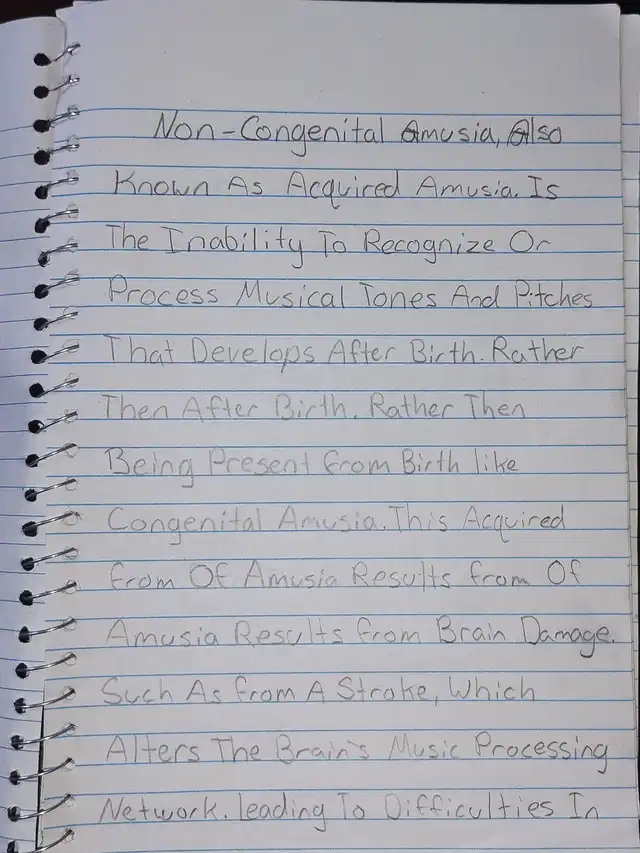 Non-Congenital Amusia, Also
Known As Acquired Amusia. Is
The Inability To Recognize Or
Process Musical Tones And Pitches
That Develops After Birth. Rather
Then After Birth. Rather Then
Being Present from Birth like
Congenital Amusia. This Acquired
from Of Amusia Results from Of
Amusia Results from Brain Damage.
Such As from A Stroke, Which
Alters The Brain's Music Processing
Network. leading To Difficulties In